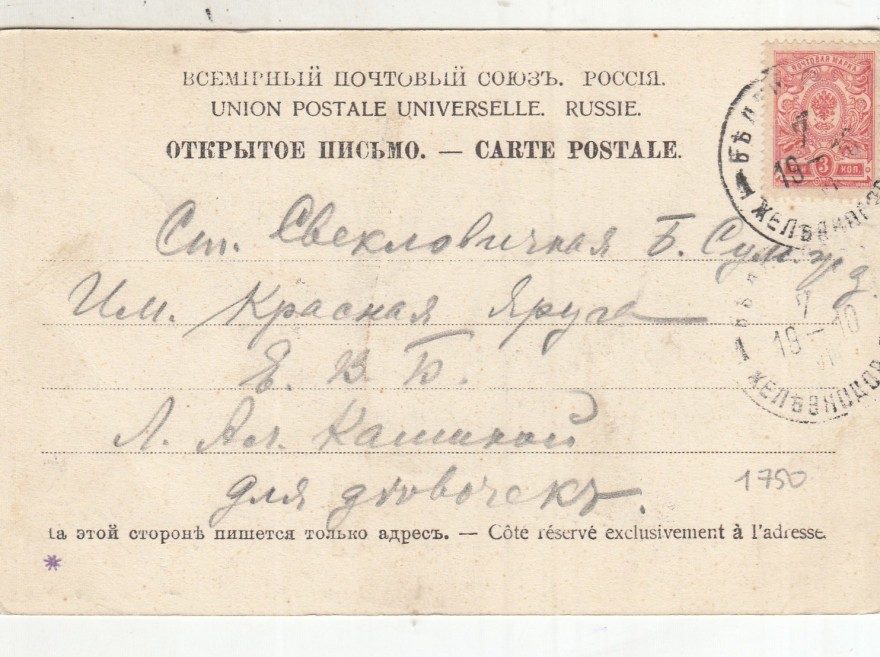 ВСЕМІРНЫЙ ПОЧТОВЫЙ СОЮЗЪ. РОССІЯ.
UNION POSTALE UNIVERSELLE. RUSSIE.
ОТКРЫТОЕ ПИСЬМО. — CARTE POSTALE.
ПОЧТОВАЯ МАРКА
3 КОП.
7
19 — 10
Ст. Свекловичная Б. Сум. ж. д.
Им. Красная Яруга
Е. В. Б.
Л. Ал. Кашиной
для дѣвочекъ.
7
19 — 10
1
1750
на этой сторонѣ пишется только адресъ. — Côté réservé exclusivement à l'adresse.